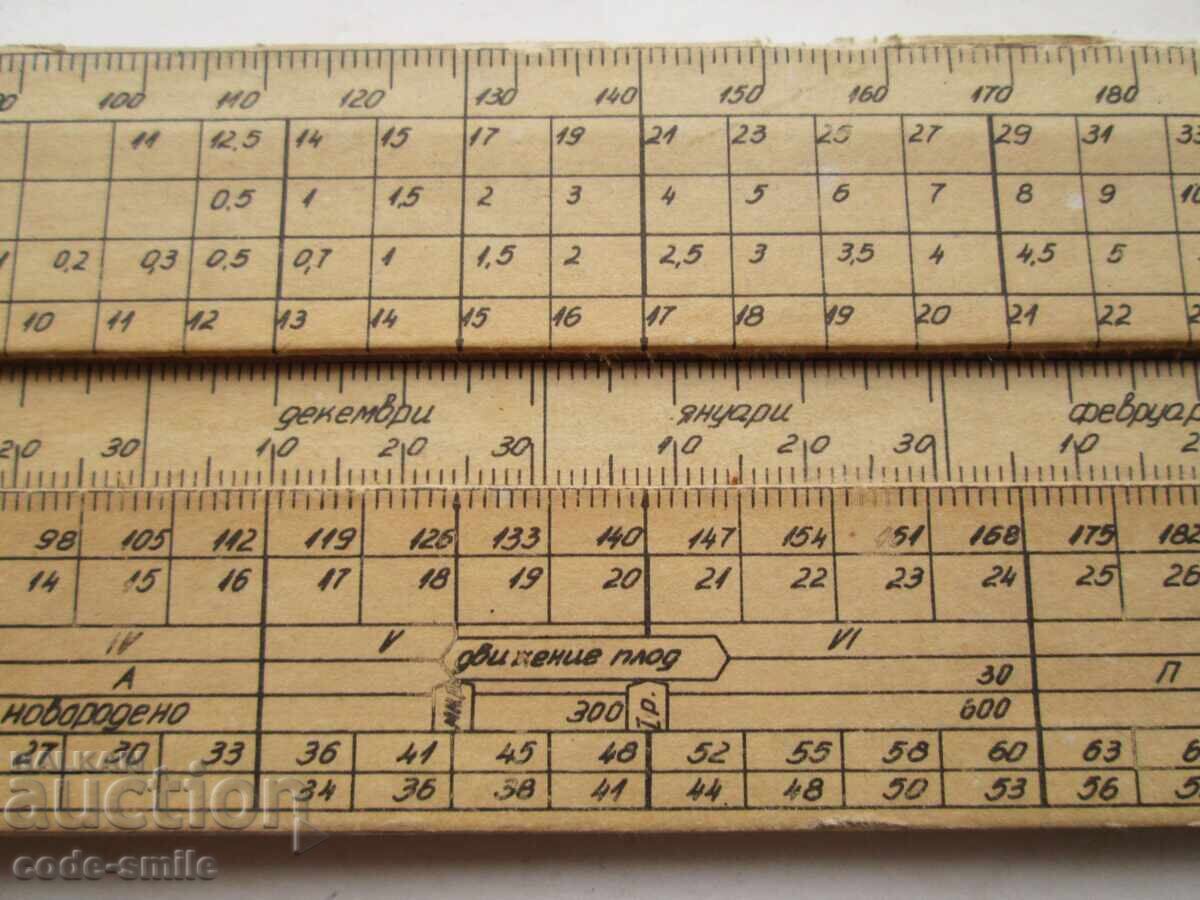 100 110 120 130 140 150 160 170 180
11 12,5 14 15 17 19 21 23 25 27 29 31 33
0,5 1 1,5 2 3 4 5 6 7 8 9 10
0,2 0,3 0,5 0,7 1 1,5 2 2,5 3 3,5 4 4,5 5
10 11 12 13 14 15 16 17 18 19 20 21 22
декември януари февруар
20 30 10 20 30 10 20 30 10 2
98 105 112 119 126 133 140 147 154 161 168 175 182
14 15 16 17 18 19 20 21 22 23 24 25 26
IV V VI
движение плод
А 30 П
новородено 300 Iр. 600
27 30 33 36 41 45 48 52 55 58 60 63 6
34 36 38 41 44 48 50 53 56 5
BALKAN
auction
code-smile